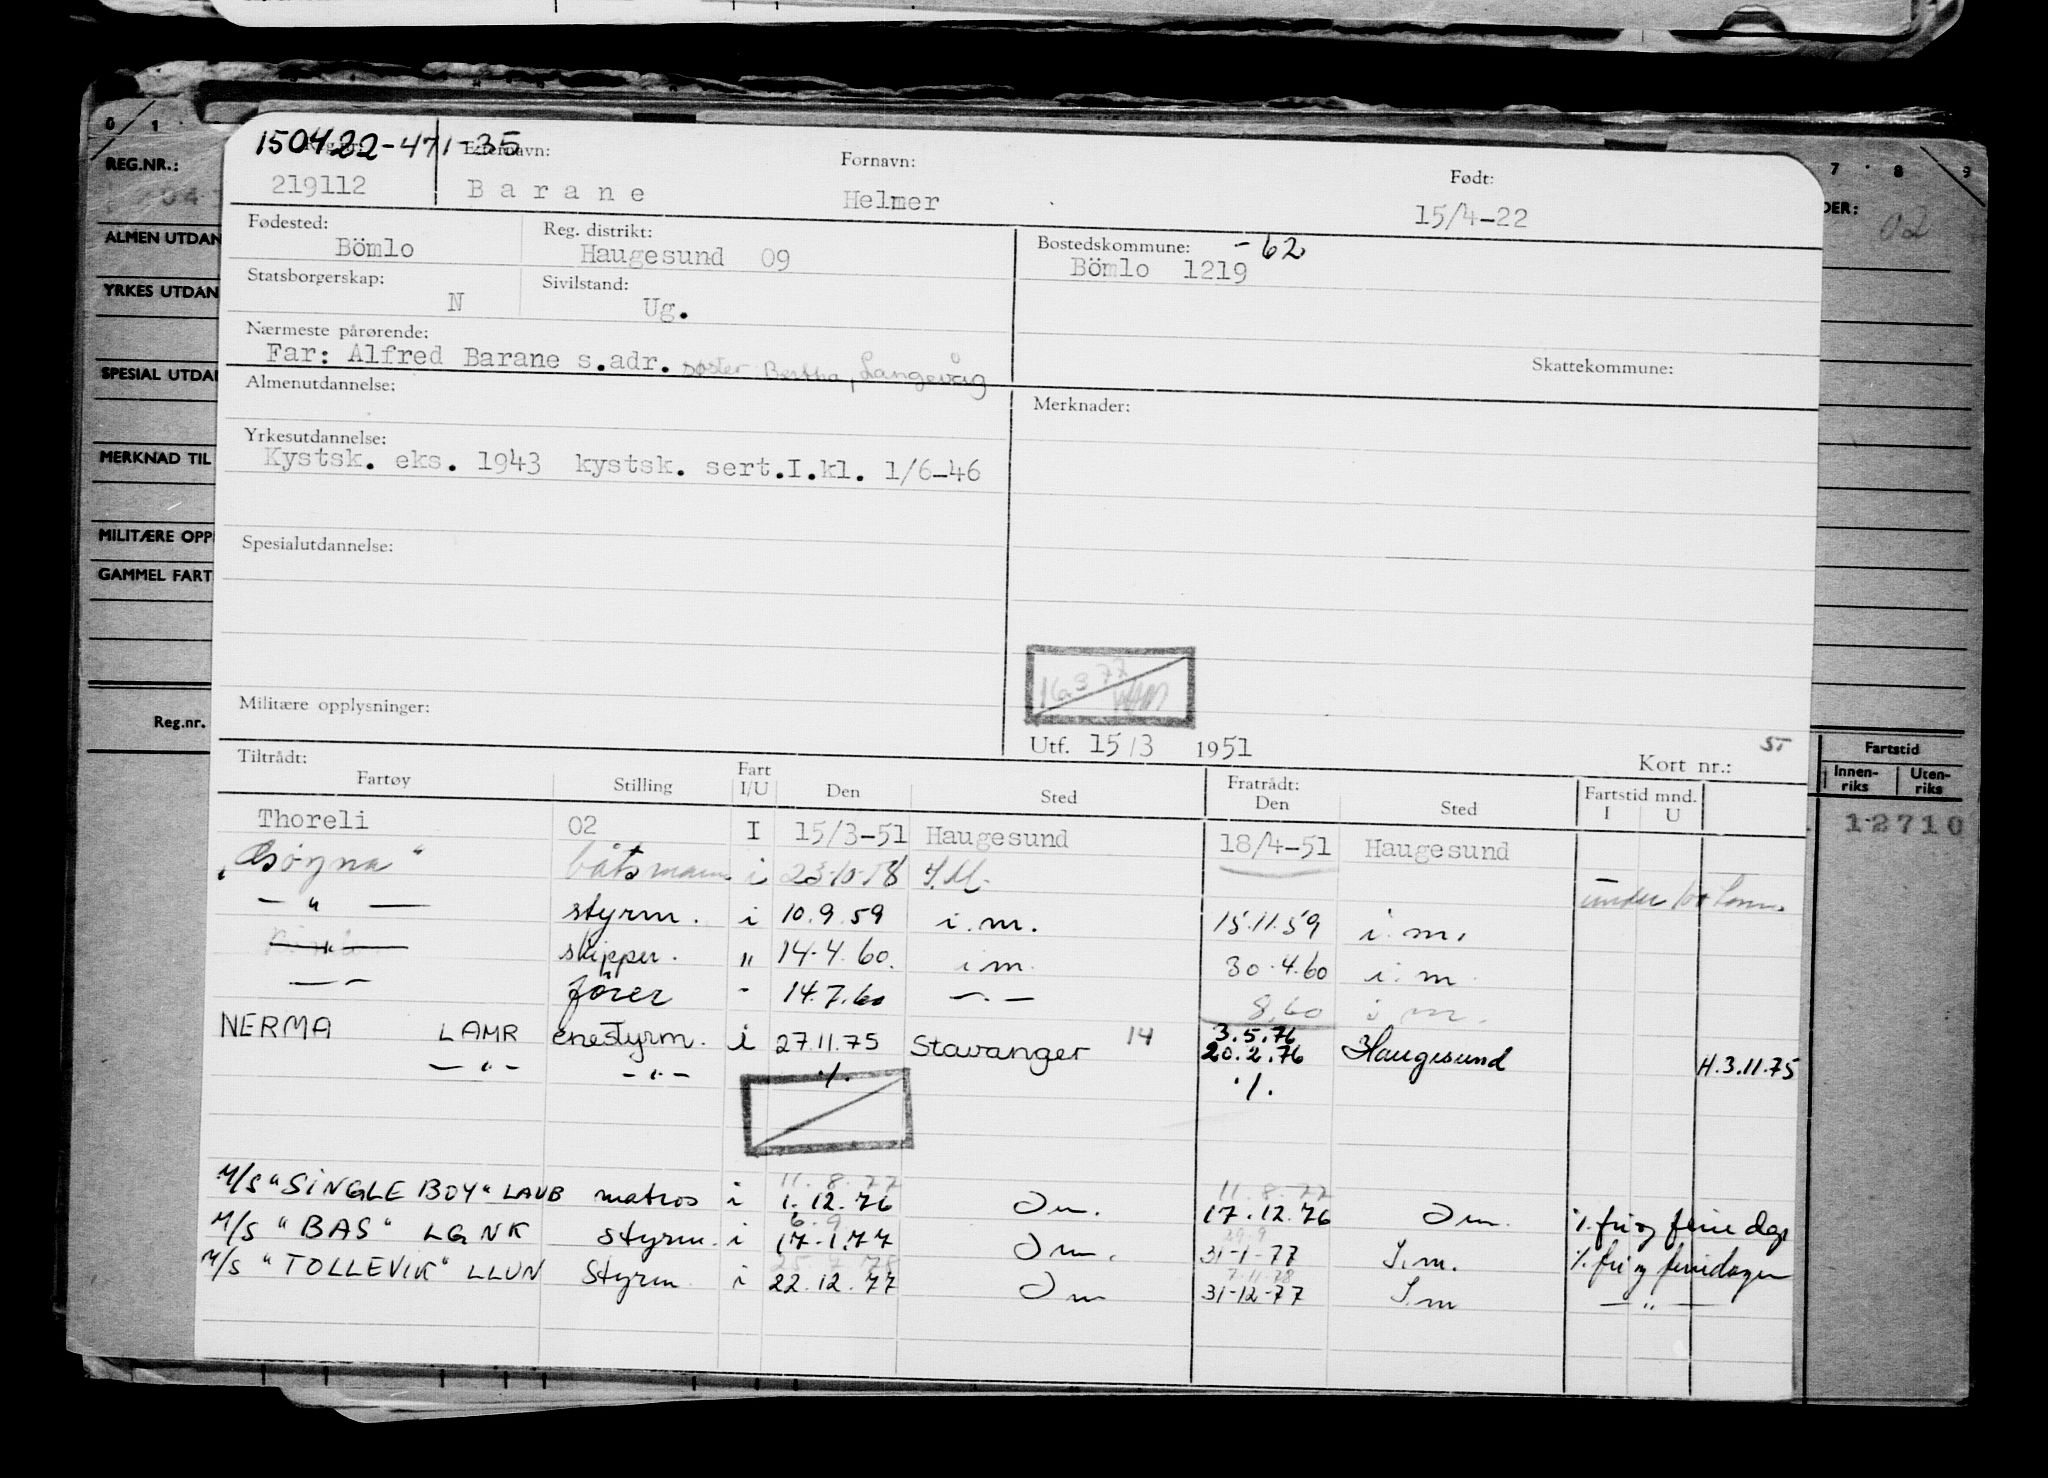 0 1 7 8 9
REG.NR.:
ALMEN UTDAN
YRKES UTDAN
SPESIAL UTDA
MERKNAD TIL
MILITÆRE OPP
GAMMEL FART
Reg.nr.
DER: 02
Fartstid
Innen-riks Uten-riks
12710
150422-471-35
Etternavn: Fornavn: Født:
219112 Barane Helmer 15/4-22
Fødested: Reg. distrikt: Bostedskommune: -62
Bömlo Haugesund 09 Bömlo 1219
Statsborgerskap: Sivilstand:
N Ug.
Nærmeste pårørende: Skattekommune:
Far: Alfred Barane s.adr. søster: Bertha, Langevåg
Almenutdannelse: Merknader:
Yrkesutdannelse:
Kystsk. eks. 1943 kystsk. sert.I.kl. 1/6-46
Spesialutdannelse:
16.3 77
Militære opplysninger:
Utf. 15/3 1951 Kort nr.: ST
Tiltrådt: Fratrådt:
Fartøy Stilling Fart I/U Den Sted Den Sted Fartstid mnd. I U
Thoreli 02 I 15/3-51 Haugesund 18/4-51 Haugesund
båtsmann i 23-10-58 I.M. under 100 tonn.
— " — styrm. i 10.9.59 i.m. 15.11.59 i.m.
" skipper. " 14-4.60. i m. 30.4.60 i.m.
— — fører - 14.7.60 —.— 8.60 i m.
NERMA LAMR enestyrm. i 27.11.75 Stavanger 14 3.5.76
20.2.76 Haugesund H.3.11.75
— " — — " — ./. ./.
11.8.77 11.8.77
M/S "SINGLE BOY" LAUB matros i 1.12.76 I m. 17.12.76 I m. ./. fri og feriedage
6.9 29.9
M/S "BAS" LGNK styrm. i 17-1.77 I m. 31-1-77 I.m. ./. fri og feriedager
25.7.78 7.11.78
M/S "TOLLEVIK" LLUN Styrm i 22.12.77 I m 31-12-77 I.m — " —